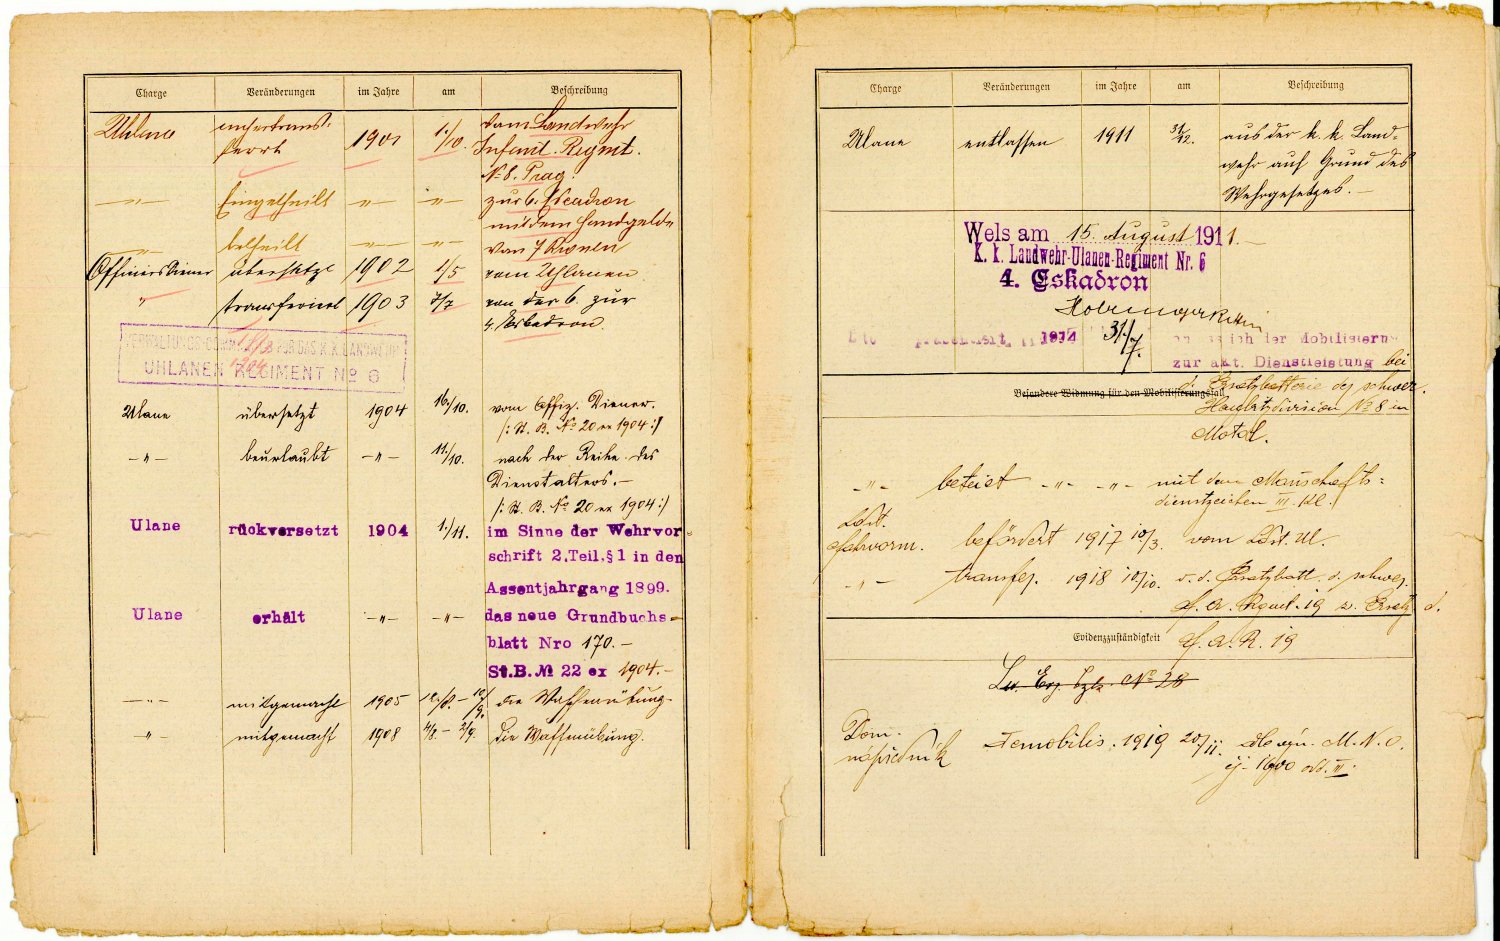 Charge Veränderungen im Jahre am Beschreibung
Uhlane 1901 1./10. vom Landwehr
Infant. Regmt.
№ 8. Prag.
—„— Eingetheilt —„— —„— zur 6. Escadron
mit dem Handgelde
—„— betheilt —„— —„— von 7 Kronen
Offiziersdiener übersetzt 1902 1/5 vom Uhlanen
„ transferiert 1903 7/7 von der 6. zur
4. Eskadron.
VERWALTUNGS-COMMISSION FÜR DAS K. K. LANDWEHR
UHLANEN REGIMENT № 6
1904
Ulane übersetzt 1904 16./10. vom Offiz. Diener.
/: St. B. № 20 ex 1904 :/
—„— beurlaubt —„— 11./10. nach der Reihe des
Dienstalters.—
/: St. B. № 20 ex 1904 :/
Ulane rückversetzt 1904 1./11. im Sinne der Wehrvor
schrift 2.Teil.§ 1 in den
Assentjahrgang 1899.
Ulane erhält —„— —„— das neue Grundbuchs-
blatt Nro 170.—
St.B.№ 22 ex 1904.—
—„— mitgemacht 1905 die Waffenübung.
—„— mitgemacht 1908 4/8. — 2/9. die Waffenübung.
Charge Veränderungen im Jahre am Beschreibung
Ulane entlassen 1911 31/12. aus der k. k. Land-
wehr auf Grund des
Wehrgesetzes.—
Wels am 15. August 1911.—
K. k. Landwehr-Ulanen-Regiment Nr. 6
4. Eskadron
präsentiert 1914 31./7. anlässlich der Mobilisierung
zur akt. Dienstleistung bei
d. Ersatzbatterie der schwer.
Besondere Widmung für den Mobilisierungsfall
Haubitzdivision № 8 in
Motol.
—„— beteilt —„— —„— mit dem Mannschafts-
dienstzeichen III. Kl.
Ldst.
Fahrvorm. befördert 1917 10/3. vom Ldst. Ul.
—„— transfer. 1918 10/10. v. d. Ersatzbatt. d. schwer.
F. A. Regmt. 19 z. Ersatz d.
Evidenzzuständigkeit F. A. R. 19
№ 28
Dom.
Demobilis. 1919 20/II. M. N. O.
čj. 1600 odd. III.